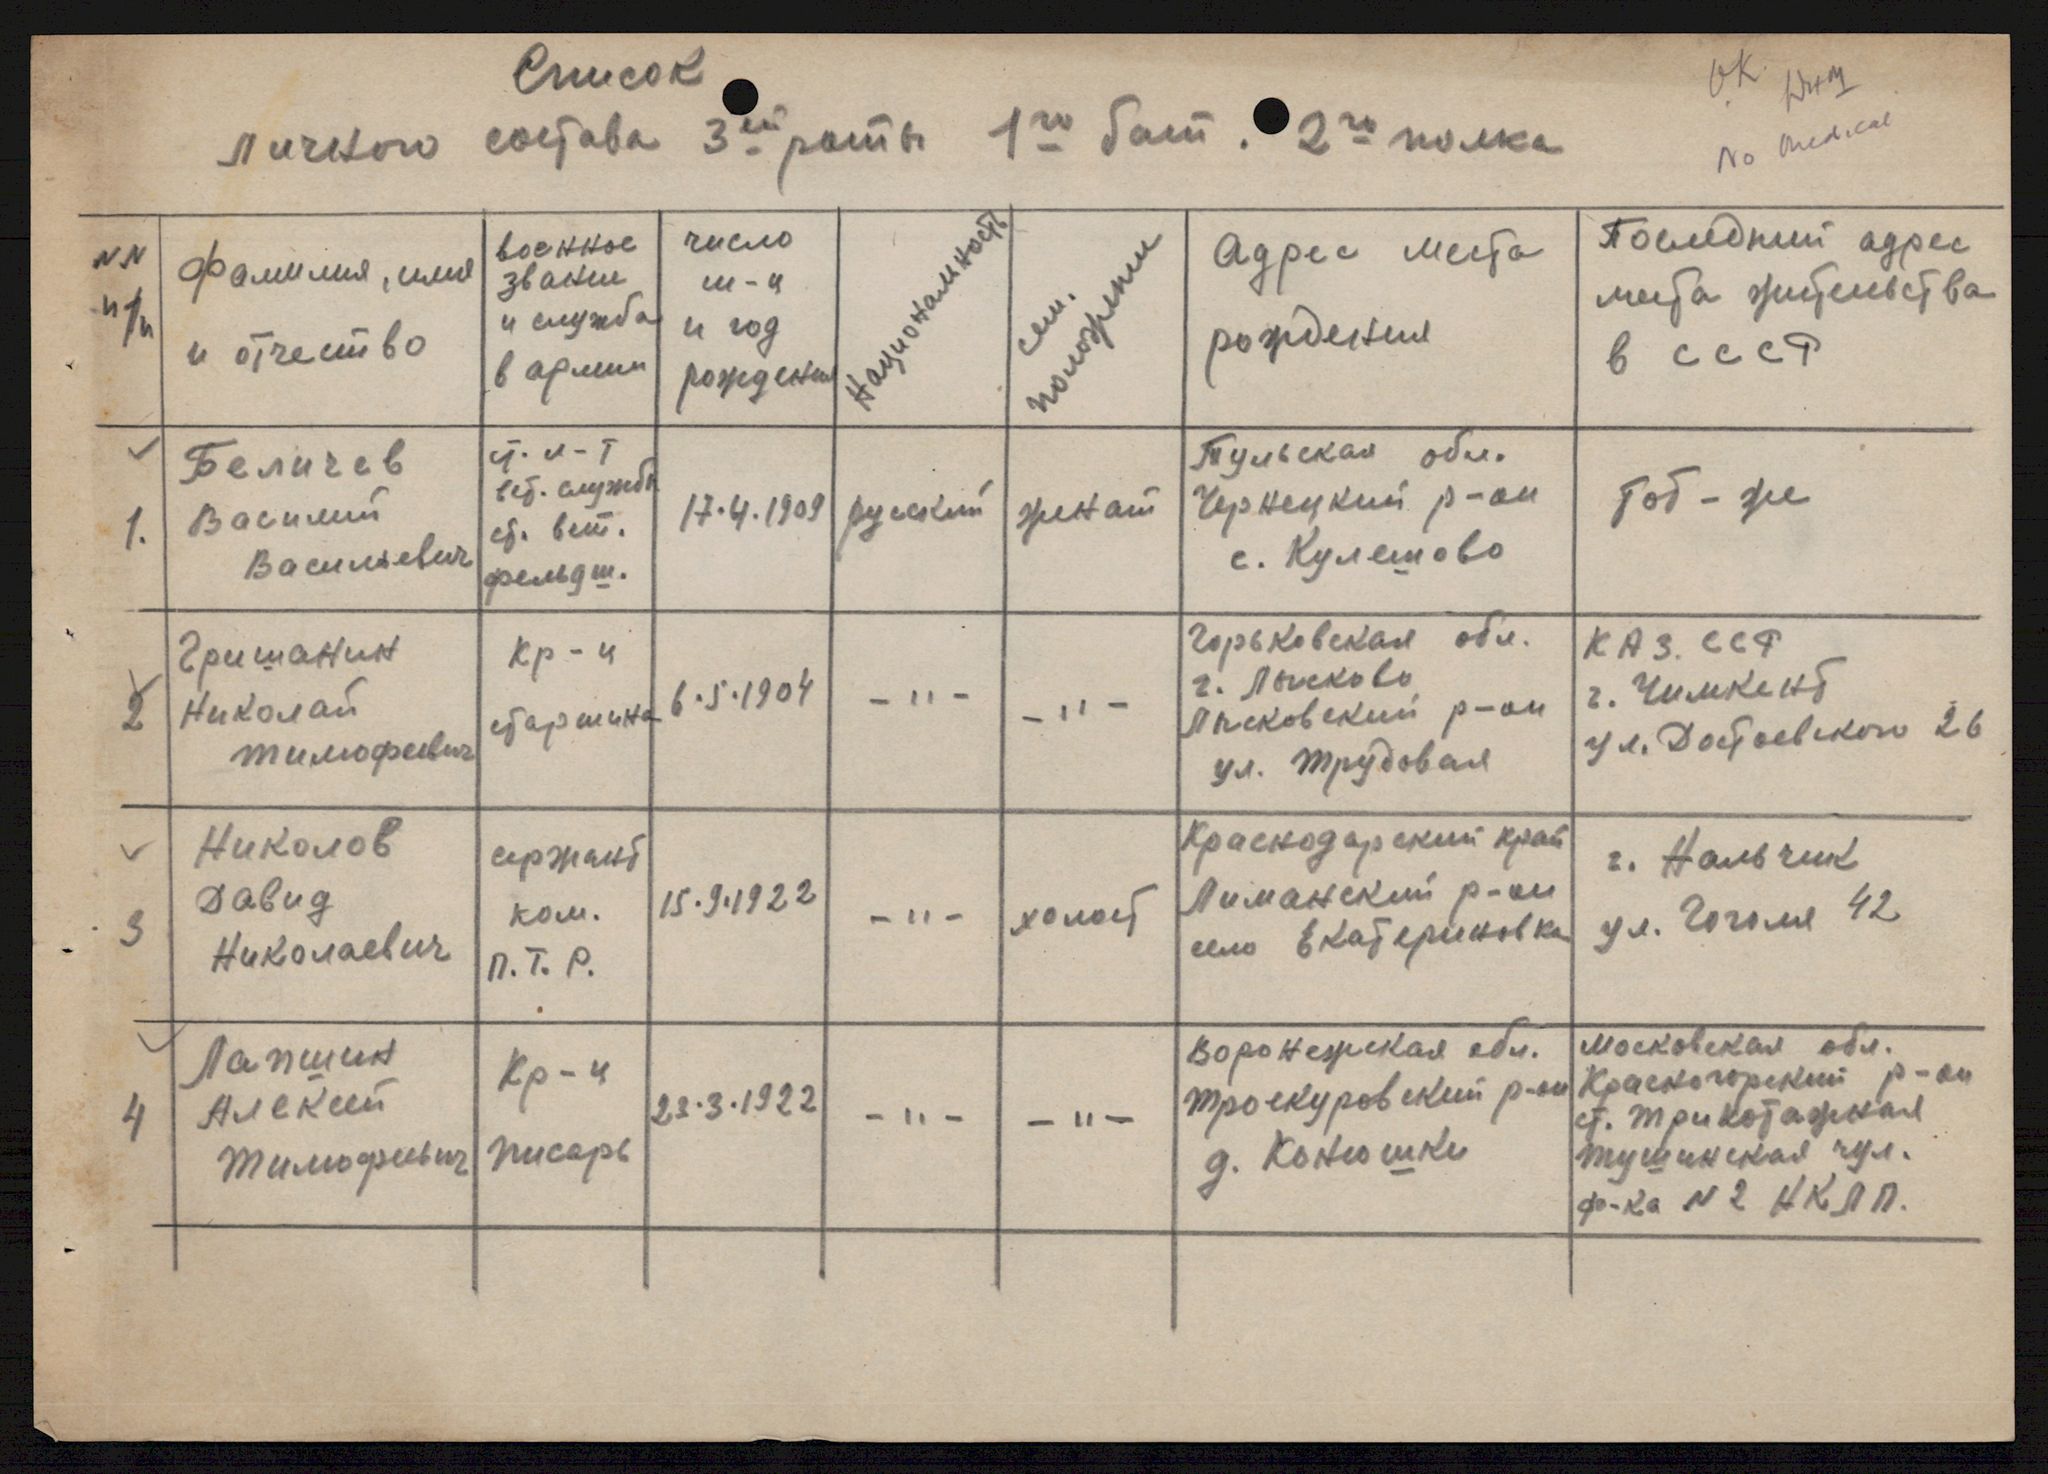 Список
личного состава 3ей роты 1го бат. 2го полка
OK
No medical
NN п/п
Фамилия, имя и отчество
военное звание и служба в армии
число м-ц и год рождения
Национальность
сем. положении
Адрес места рождения
Последний адрес места жительства в СССР
1.
Беличев
Василий
Васильевич
ст. л-т
вет. службы
ст. вет.
фельдш.
17.4.1909
русский
женат
Тульская обл.
Чернецкий р-он
с. Кулешово
Тоб-же
2
Гришанин
Николай
Тимофеевич
Кр-ц
старшина
6.5.1904
-"-
-"-
Горьковская обл.
г. Лысково
Лысковский р-он
ул. Трудовая
КАЗ. ССР
г. Чимкент
ул. Достоевского 26
3
Николов
Давид
Николаевич
сержант
ком.
П.Т.Р.
15.9.1922
-"-
холост
Краснодарский край
Лиманский р-он
село Екатериновка
г. Нальчик
ул. Гоголя 42
4
Лапшин
Алексей
Тимофеевич
Кр-ц
писарь
23.3.1922
-"-
-"-
Воронежская обл.
Троекуровский р-он
д. Конюшки
Московская обл.
Красногорский р-он
ст. Трикотажная
Тушинская чул.
ф-ка N 2 НКЛП.